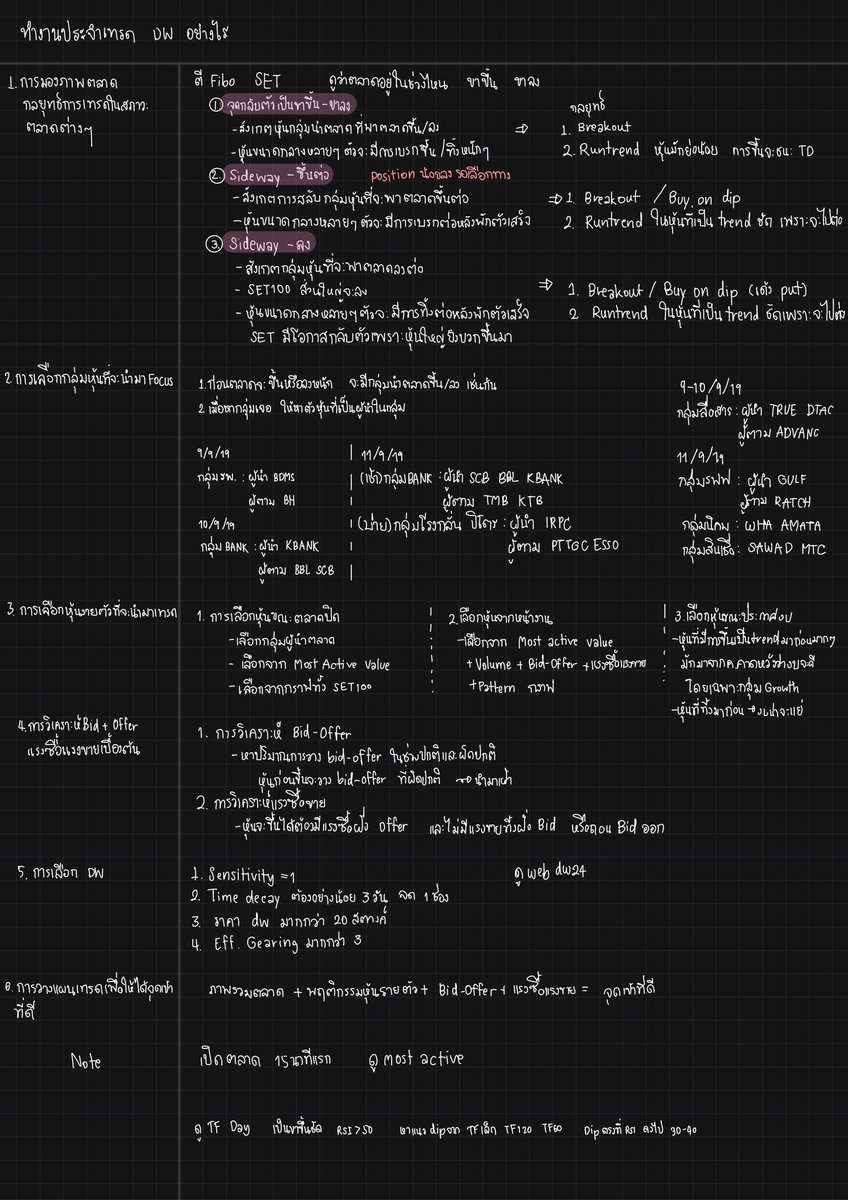 ทำงานประจำเทรด DW อย่างไร
1. การมองภาพตลาด
กลยุทธ์การเทรดในสภาวะ
ตลาดต่างๆ
ตี Fibo SET ดูว่าตลาดอยู่ในช่วงไหน ขาขึ้น ขาลง
① จุดกลับตัวเป็นขาขึ้น - ขาลง
- สังเกตหุ้นกลุ่มนำตลาด ที่พาตลาดขึ้น/ลง
- หุ้นขนาดกลางหลายๆ ตัวจะมีการเบรกขึ้น / ทิ้งหนักๆ
⇒ กลยุทธ์
1. Breakout
2. Runtrend หุ้นมักย่อน้อย การขึ้นจะชนะ TD
②. Sideway - ขึ้นต่อ position น้อยลง รอเลือกทาง
- สังเกตการสลับกลุ่มหุ้นที่จะพาตลาดขึ้นต่อ
- หุ้นขนาดกลางหลายๆ ตัวจะ มีการเบรกต่อหลังพักตัวเสร็จ
⇒ 1. Breakout / Buy on dip
2. Runtrend ในหุ้นที่เป็น trend ชัด เพราะจะไปต่อ
③ Sideway - ลง
- สังเกตกลุ่มหุ้นที่จะพาตลาดลงต่อ
- SET100 ส่วนใหญ่จะลง
- หุ้นขนาดกลางหลายๆตัวจะ มีการทิ้งต่อหลังพักตัวเสร็จ
SET มีโอกาสกลับตัวเพราะหุ้นใหญ่ยังบวกขึ้นมา
⇒ 1. Breakout / Buy on dip (เด้ง put)
2 Runtrend ในหุ้นที่เป็น trend ชัดเพราะจะไปต่อ
2. การเลือกกลุ่มหุ้นที่จะนำมา Focus
1. ก่อนตลาดจะขึ้นหรือลงหนัก จะมีกลุ่มนำตลาดขึ้น/ลง เช่นกัน
2. เมื่อหากลุ่มเจอ ให้หาตัวหุ้นที่เป็นผู้นำในกลุ่ม
9/9/19
กลุ่มรพ. : ผู้นำ BDMS
ผู้ตาม BH
10/9/19
กลุ่ม BANK : ผู้นำ KBANK
ผู้ตาม BBL SCB
11/9/19
(เช้า) กลุ่ม BANK : ผู้นำ SCB BBL KBANK
ผู้ตาม TMB KTB
(บ่าย) กลุ่มโรงกลั่น ปิโตร : ผู้นำ IRPC
ผู้ตาม PTTGC ESSO
9-10/9/19
กลุ่มสื่อสาร : ผู้นำ TRUE DTAC
ผู้ตาม ADVANC
11/9/19
กลุ่มรฟฟ : ผู้นำ GULF
ผู้ตาม RATCH
กลุ่มนิคม : WHA AMATA
กลุ่มสินเชื่อ : SAWAD MTC
3. การเลือกหุ้นรายตัวที่จะนำมาเทรด
1. การเลือกหุ้นขณะตลาดปิด
- เลือกกลุ่มผู้นำตลาด
- เลือกจาก Most Active Value
- เลือกจากกราฟทั้ง SET100
2. เลือกหุ้นจากหน้างาน
- เลือกจาก Most active value
+ Volume + Bid-Offer + แรงซื้อแรงขาย
+ Pattern กราฟ
3. เลือกหุ้นขณะประกาศงบ
- หุ้นที่มีการขึ้นเป็นtrendมาก่อนมากๆ
มักมาจากคาดหวังว่างบจะดี
โดยเฉพาะกลุ่ม Growth
- หุ้นที่ทิ้งมาก่อน → งบน่าจะแย่
4. การวิเคราะห์ Bid + Offer
แรงซื้อแรงขายเบื้องต้น
1. การวิเคราะห์ Bid-Offer
- หาปริมาณการวาง bid-offer ในช่วงปกติและผิดปกติ
หุ้นก่อนขึ้นจะวาง bid-offer ที่ผิดปกติ → นำมาเฝ้า
2. การวิเคราะห์แรงซื้อขาย
- หุ้นจะขึ้นได้ต้องมีแรงซื้อฝั่ง Offer และไม่มีแรงขายทิ้งฝั่ง Bid หรือถอน Bid ออก
5. การเลือก DW
1. Sensitivity = 1
2. Time decay ต้องอย่างน้อย 3 วัน ลด 1 ช่อง
3. ราคา dw มากกว่า 20 สตางค์
4. Eff. Gearing มากกว่า 3
ดู web dw24
6. การวางแผนเทรดเพื่อให้ได้จุดเข้า
ที่ดี
ภาพรวมตลาด + พฤติกรรมหุ้นรายตัว + Bid-Offer + แรงซื้อแรงขาย = จุดเข้าที่ดี
Note
เปิดตลาด 15 นาทีแรก ดู most active
ดู TF Day เป็นขาขึ้นชัด RSI > 50 หาแนว dip จาก TF เล็ก TF120 TF60 Dip ตรงที่ RSI ลงไป 30-40